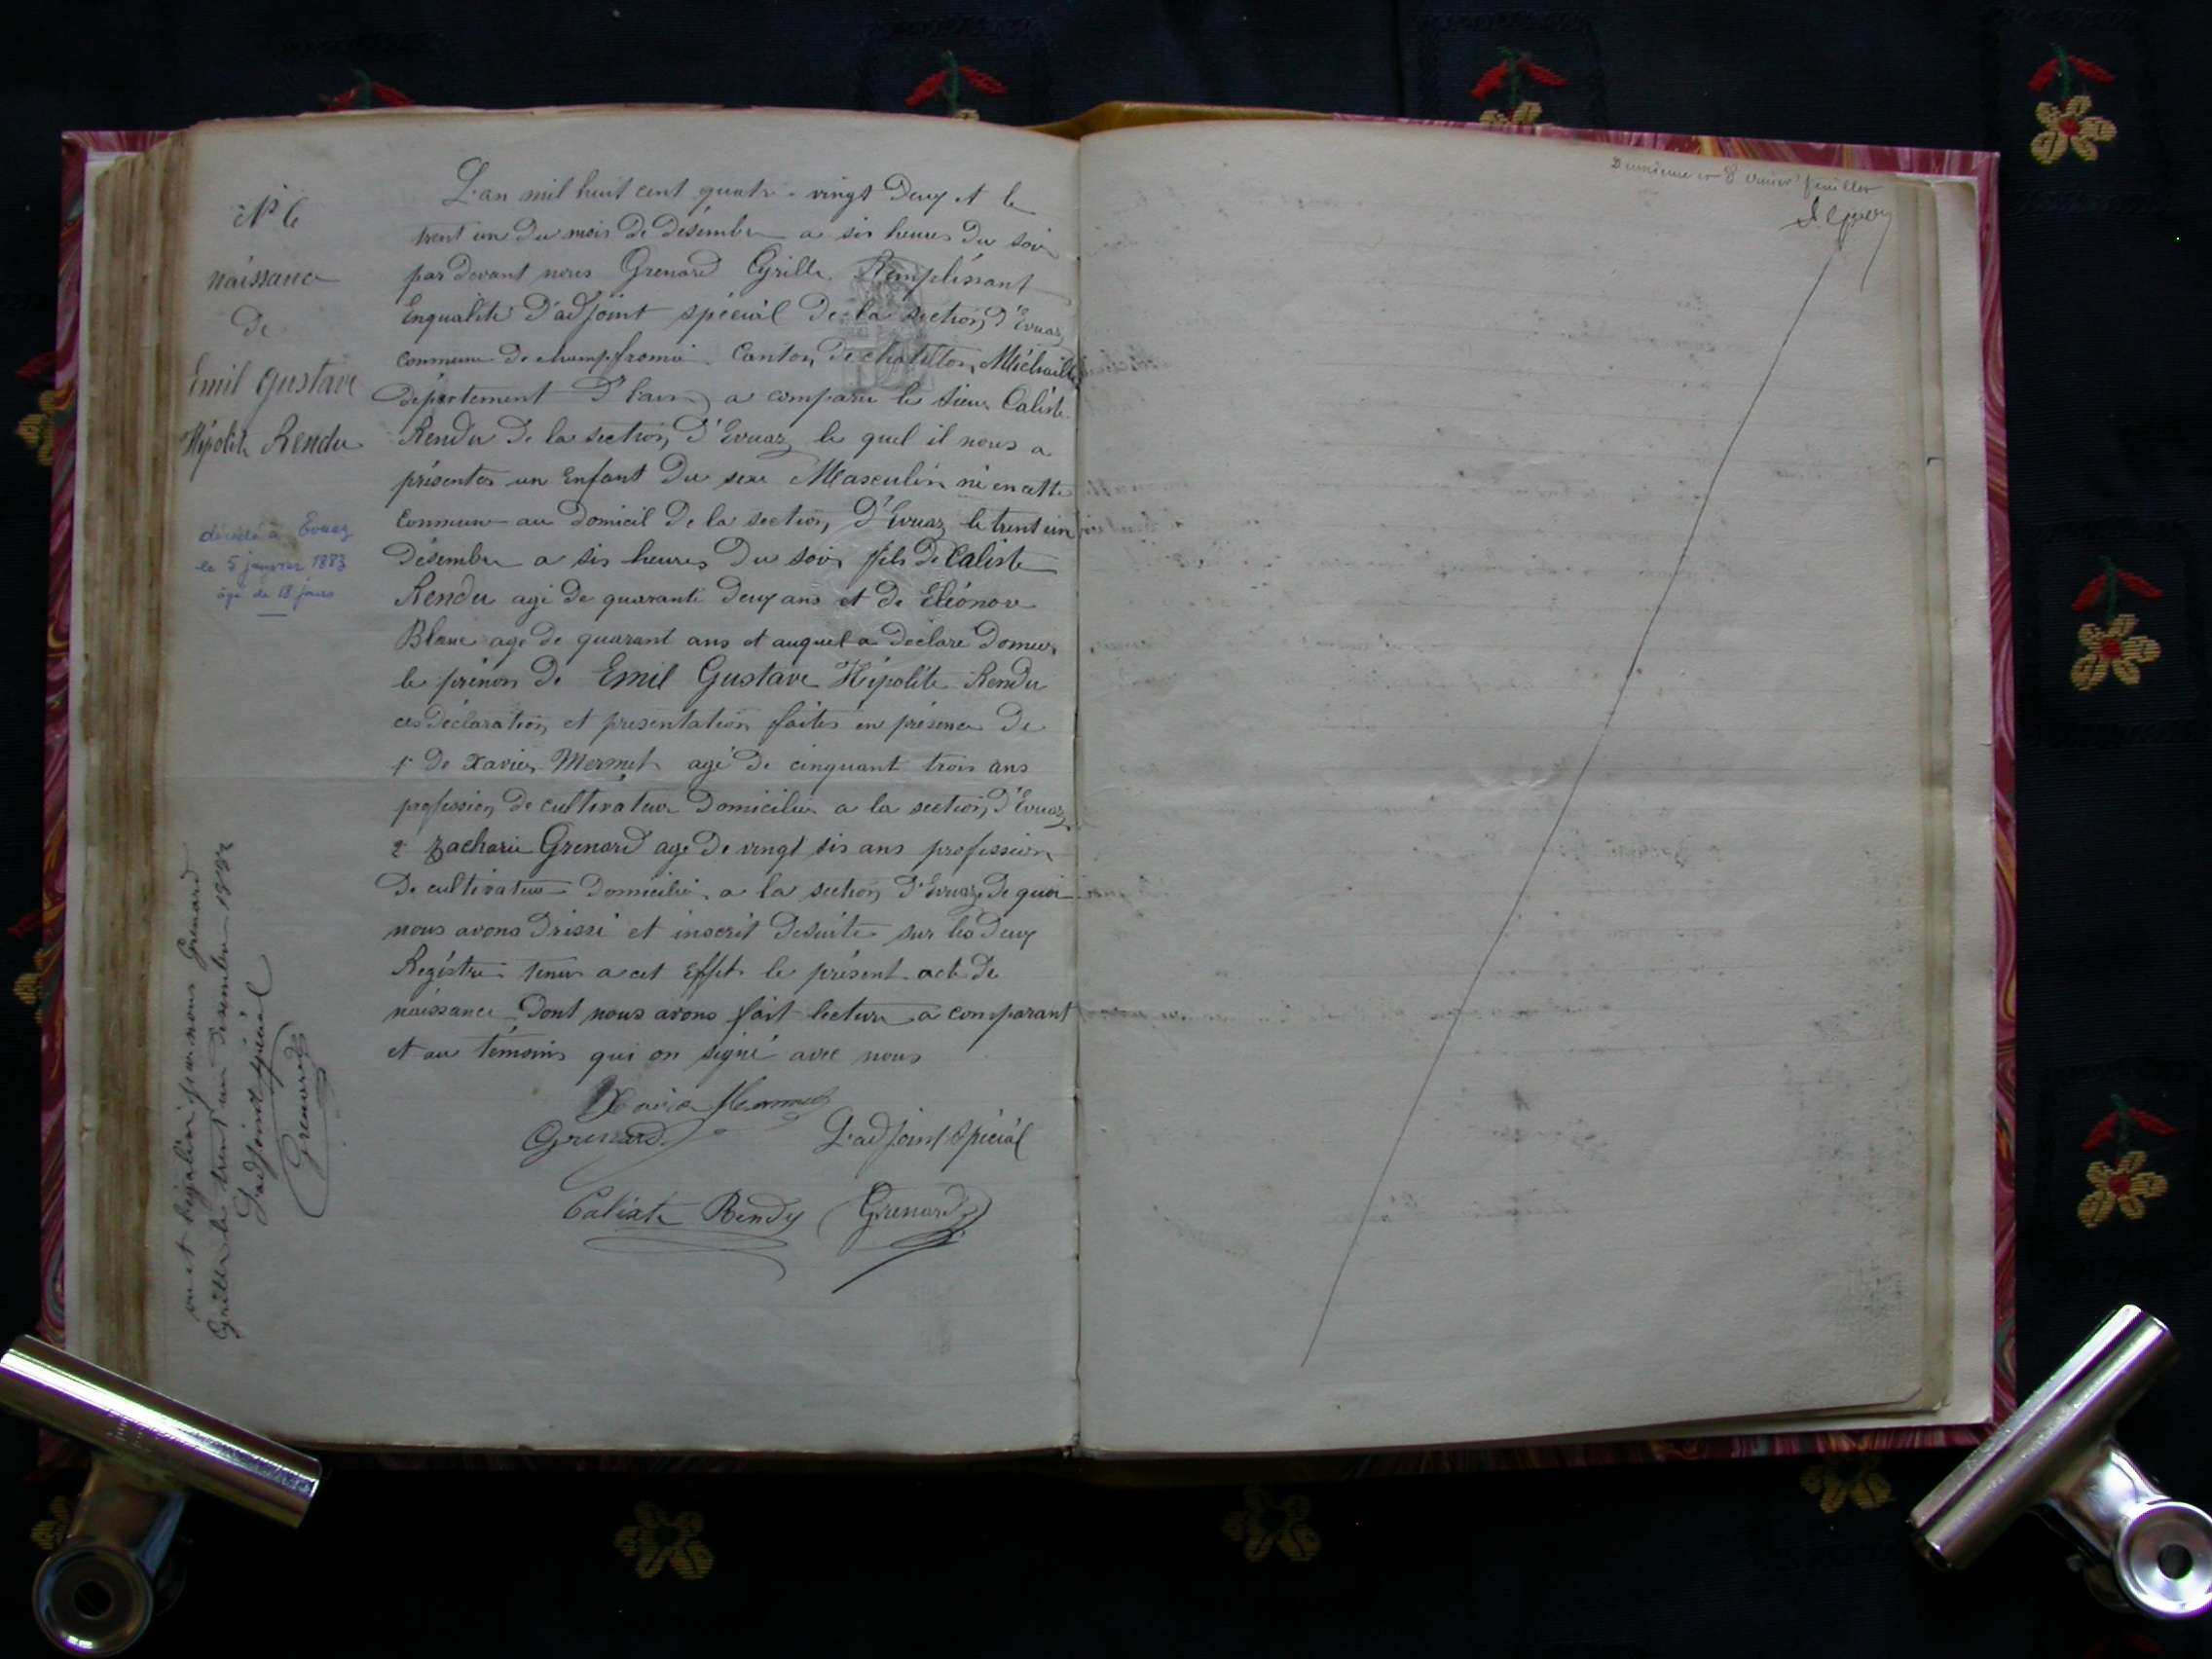 N° 6
naissance
de
Emil Gustave
Hipolite Rendu
décédé à Evuaz
le 5 janvier 1883
âgé de jours
L'an mil huit cent quatre-vingt deux et le
trent un du mois de désembre a sis heures du soir
par devant nous Grenard Cyrille Remplissant
Enqualité d'adjoint spécial de la section d'Evuaz
commune de champfromié Canton de chatillon Michaille
département d'lain a comparu le sieur Caliste
Rendu de la section d'Evuaz le quel il nous a
présenter un Enfant du sexe Masculin né en cette
Commune au domicil de la section d'Evuaz le trent un
désembre a sis heures du soir fils de Caliste
Rendu agé de quaranti deux ans et de Eléonore
Blanc agé de quarant ans et auquel a déclaré donner
le prénon de Emil Gustave Hipolite Rendu
ces déclaration et présentation faites en présence de
1° de Xavier Mermet agé de cinquant trois ans
profession de cultivateur domicilier a la section d'Evuaz
2° Zacharie Grenard agé de vingt sis ans profession
de cultivateur domicilié a la section d'Evuaz de quoi
nous avons drissé et inscrit desuite sur les deux
Régistre tenu a cet Effet le présent acte de
naissance dont nous avons fait lecture a comparant
et au témoins qui on signé avec nous
Xavier Mermet
Grenard L'adjoint spécial
Calixte Rendu Grenard
par nous Grenard
Cyrille le trent un désembre 1882
L'adjoint spécial
Grenard
Deuxième et dernier feuillet